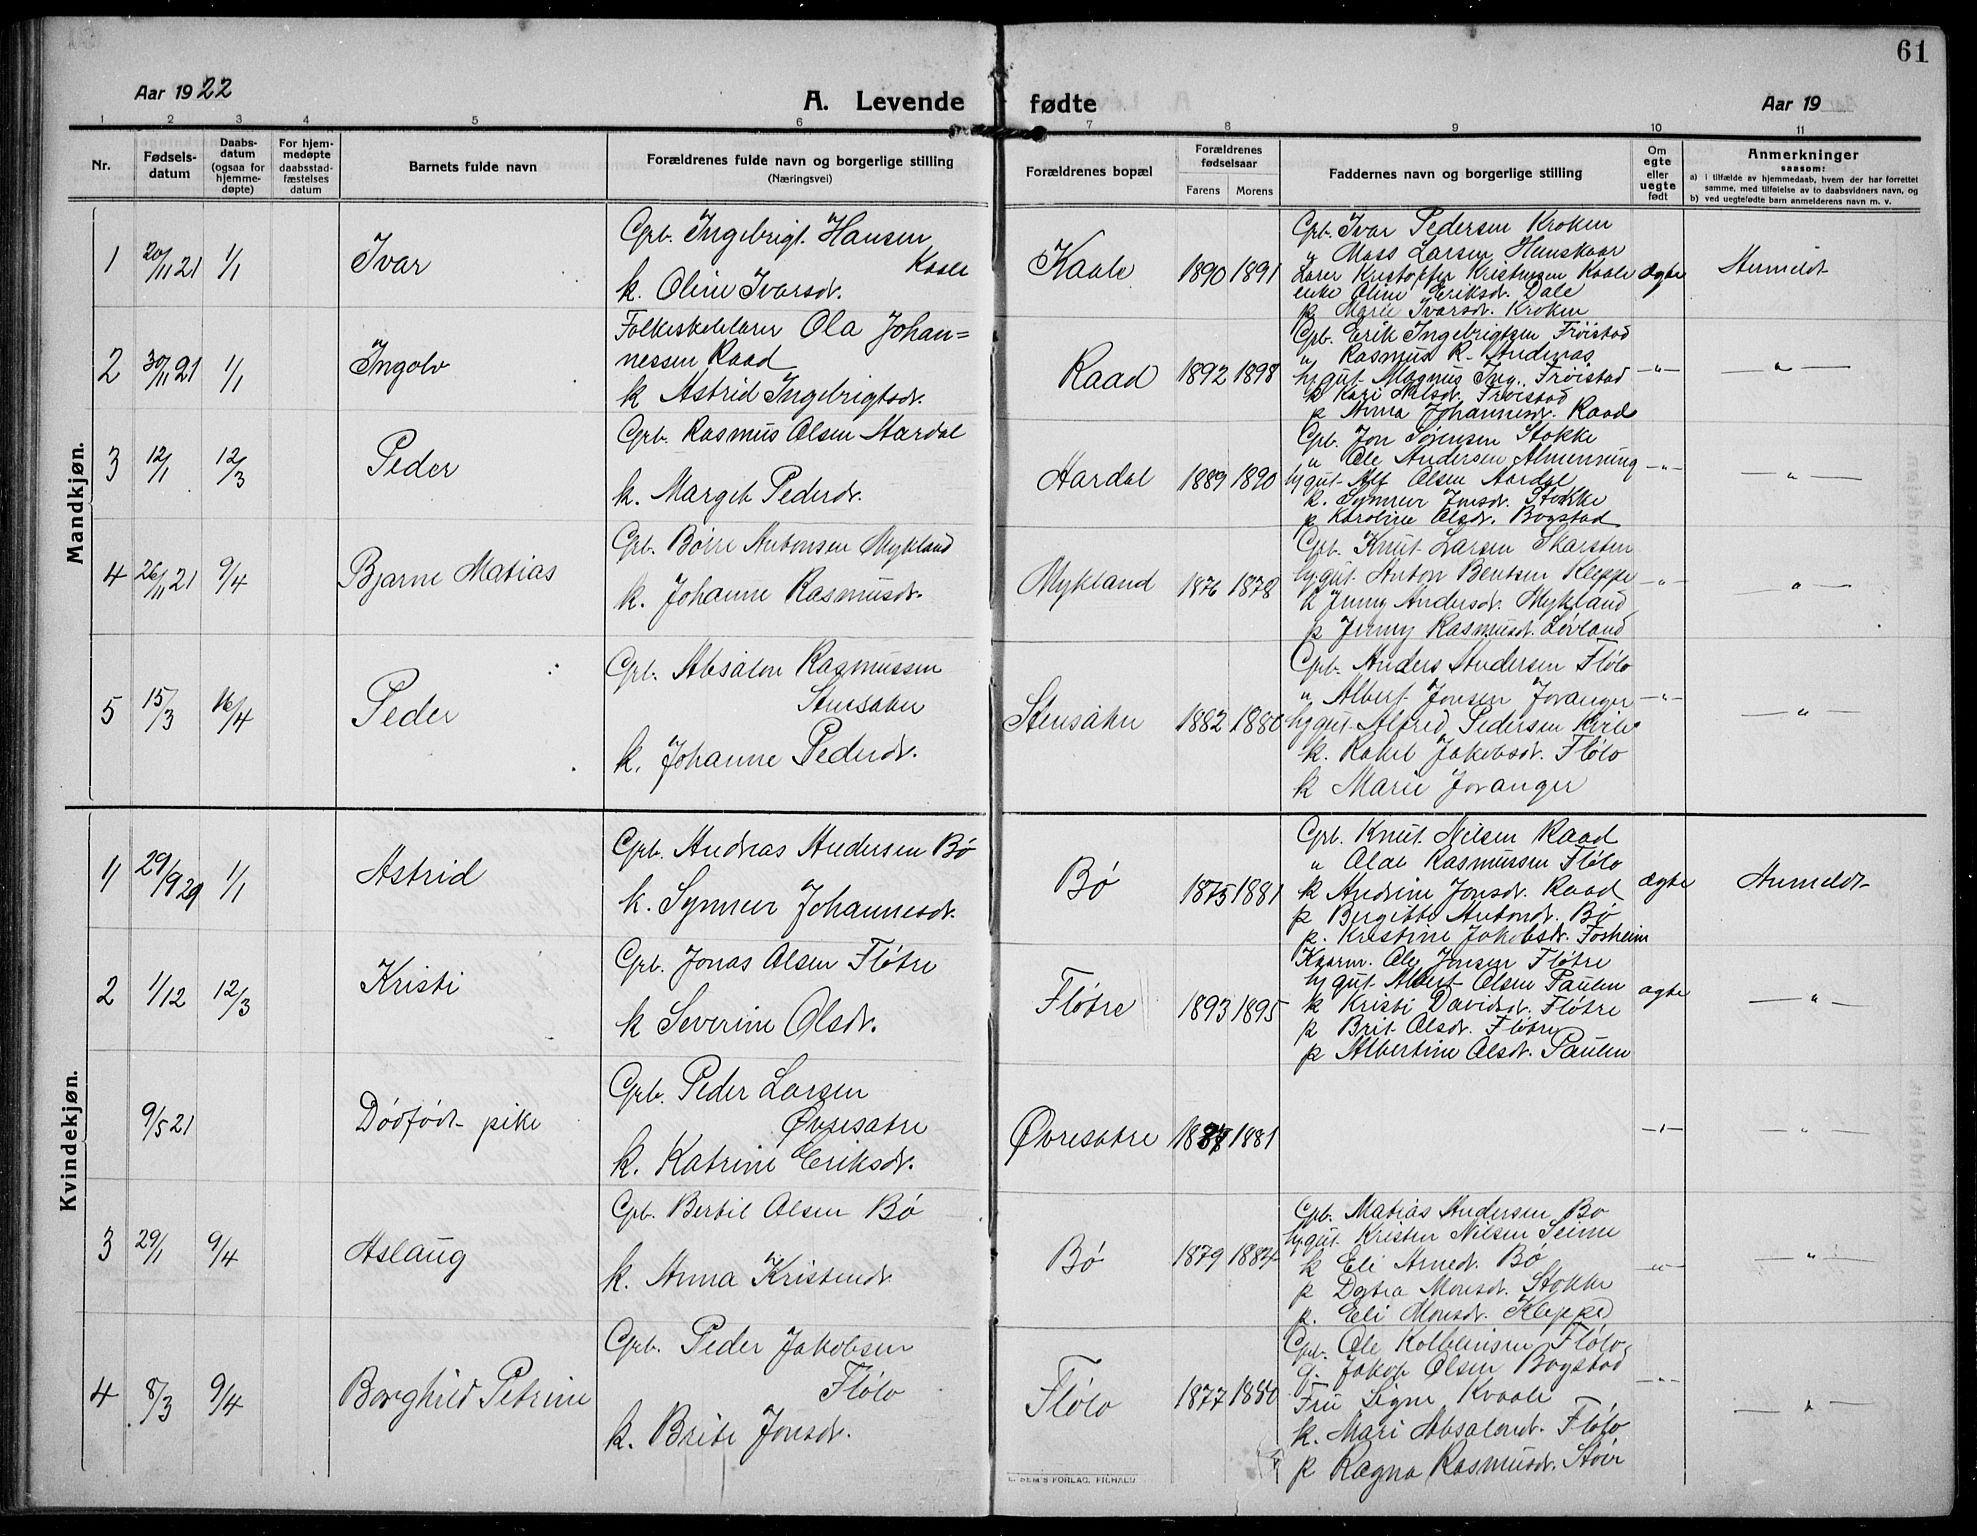 61
Aar 1922
A. Levende fødte
Aar 19
1 2 3 4 5 6 7 8 9 10 11
Nr.
Fødsels-
datum
Daabs-
datum
(ogsaa for
hjemme-
døpte)
For hjem-
medøpte
daabsstad-
fæstelses
datum
Barnets fulde navn
Forældrenes fulde navn og borgerlige stilling
(Næringsvei)
Forældrenes bopæl
Forældrenes
fødselsaar
Farens Morens
Faddernes navn og borgerlige stilling
Om
egte
eller
uegte
født
Anmerkninger
saasom:
a) i tilfælde av hjemmedaab, hvem der har forrettet
samme, med tilføielse av to daabsvidners navn, og
b) ved uegtefødte barn anmelderens navn m. v.
Mandkjøn.
1 20/11 21 1/1 Ivar
Grb. Ingebrigt Hansen
Kaale
k. Oline Ivarsdr.
Kaale 1890 1891
Grb. Ivar Pedersen Kroken
" Mass Larsen Hunskaar
Lærer Kristoffer Kristensen Kaale
enke Oline Eriksdr. Dale
p Marie Ivarsdr. Kroken
ægte Anmeldt
2 30/11 21 1/1 Ingolv
Folkeskolelærer Ola Johan=
nessen Raad
k Astrid Ingebrigtsdr.
Raad 1892 1898
Grb. Erik Ingebrigtsen Frøistad
" Rasmus R. Andenas
ygut. Magnus Ing. Frøistad
k Kari Nilsdr. Frøistad
p Anna Johannesdr. Raad
—"— —"—
3 12/1 12/3 Peder
Grb. Rasmus Olsen Aardal
k. Margit Pedersdr.
Aardal 1889 1890
Grb. Jon Sørensen Stokke
" Ole Andersen Almenning
ygut Alf Olsen Aardal
k. Synneve Jonsdr. Stokke
p Karoline Olsdr. Bogstad
—"— —"—
4 26/11 21 9/4 Bjarne Matias
Grb. Børre Antonsen Mykland
k. Johanne Rasmusdr.
Mykland 1876 1878
Grb. Knut Larsen Skarsten
ygut. Anton Bentsen Kleppe
k Jenny Andersdr. Mykland
p Jenny Rasmusdr. Løvland
—"— —"—
5 15/3 16/4 Peder
Grb. Absalon Rasmussen
Stensæter
k. Johanne Pedersdr.
Stensæter 1882 1880
Grb. Anders Andersen Fløto
" Albert Jonsen Joranger
ygut Alfred Pedersen Kvile
k. Rakel Jakobsdr. Fløto
k Marie Joranger
—"— —"—
Kvindekjøn.
1 29/9 20 1/1 Astrid
Grb. Andreas Andersen Bø
k. Synneve Johannesdr.
Bø 1875 1881
Grb. Knut Nilsen Raad
" Olai Rasmussen Fløto
k Andrine Jonsdr. Raad
p Bergitte Antondr. Bø
p. Kristine Jakobsdr. Forheim
ægte Anmeldt
2 1/12 12/3 Kristi
Grb. Jonas Olsen Fløtre
k Severine Olsdr.
Fløtre 1893 1895
Kaarm. Ole Jonsen Fløtre
ygut. Albert Olsen Paulen
k Kristi Davidsdr. Fløtre
p Brit Olsdr. Fløtre
p Albertine Olsdr. Paulen
ægte —"—
9/5 21 Dødfødt pike
Grb. Peder Larsen
Øvresætre
k. Katrine Eriksdr.
Øvresætre 1881
—"— —"—
3 29/1 9/4 Aslaug
Grb. Bertil Olsen Bø
k. Anna Kristendr.
Bø 1879 1884
Grb. Matias Andersen Bø
ygut. Kristen Nilsen Seime
k Eli Arnedr. Bø
p Dortea Monsdr. Stokke
p. Eli Monsdr. Kleppe
—"— —"—
4 8/3 9/4 Borghild Petrine
Grb. Peder Jakobsen
Fløto
k. Brite Jonsdr.
Fløto 1877 1880
Grb. Ole Kolbensen Fløto
g. Jakob Olsen Bogstad
Fru Signe Kvaale
k. Mari Absalondr. Fløto
p Ragna Rasmusdr. Støir
—"— —"—
E. SEM'S FORLAG, FR.HALD